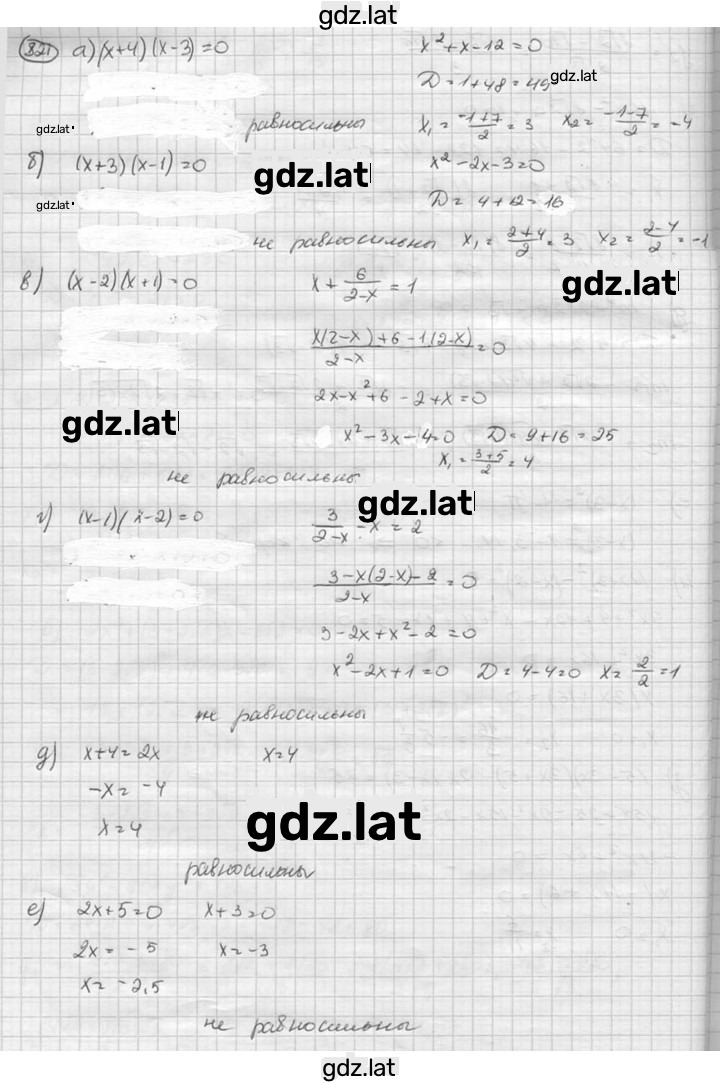 gdz.lat
821 а) (x+4)(x-3)=0 x²+x-12=0
D=1+48=49 gdz.lat
gdz.lat равносильны x₁=(-1+7)/2=3 x₂=(-1-7)/2=-4
б) (x+3)(x-1)=0 gdz.lat x²-2x-3=0
gdz.lat D=4+12=16
не равносильны x₁=(2+4)/2=3 x₂=(2-4)/2=-1
в) (x-2)(x+1)=0 x+6/(2-x)=1 gdz.lat
(x(2-x)+6-1(2-x))/(2-x)=0
2x-x²+6-2+x=0
gdz.lat x²-3x-4=0 D=9+16=25
x₁=(3+5)/2=4
не равносильны
г) (x-1)(x-2)=0 gdz.lat 3/(2-x)-x=2
(3-x(2-x)-2)/(2-x)=0
3-2x+x²-2=0
x²-2x+1=0 D=4-4=0 x=2/2=1
не равносильны
д) x+4=2x x=4
-x=-4
x=4 gdz.lat
равносильны
е) 2x+5=0 x+3=0
2x=-5 x=-3
x=-2,5
не равносильны
gdz.lat